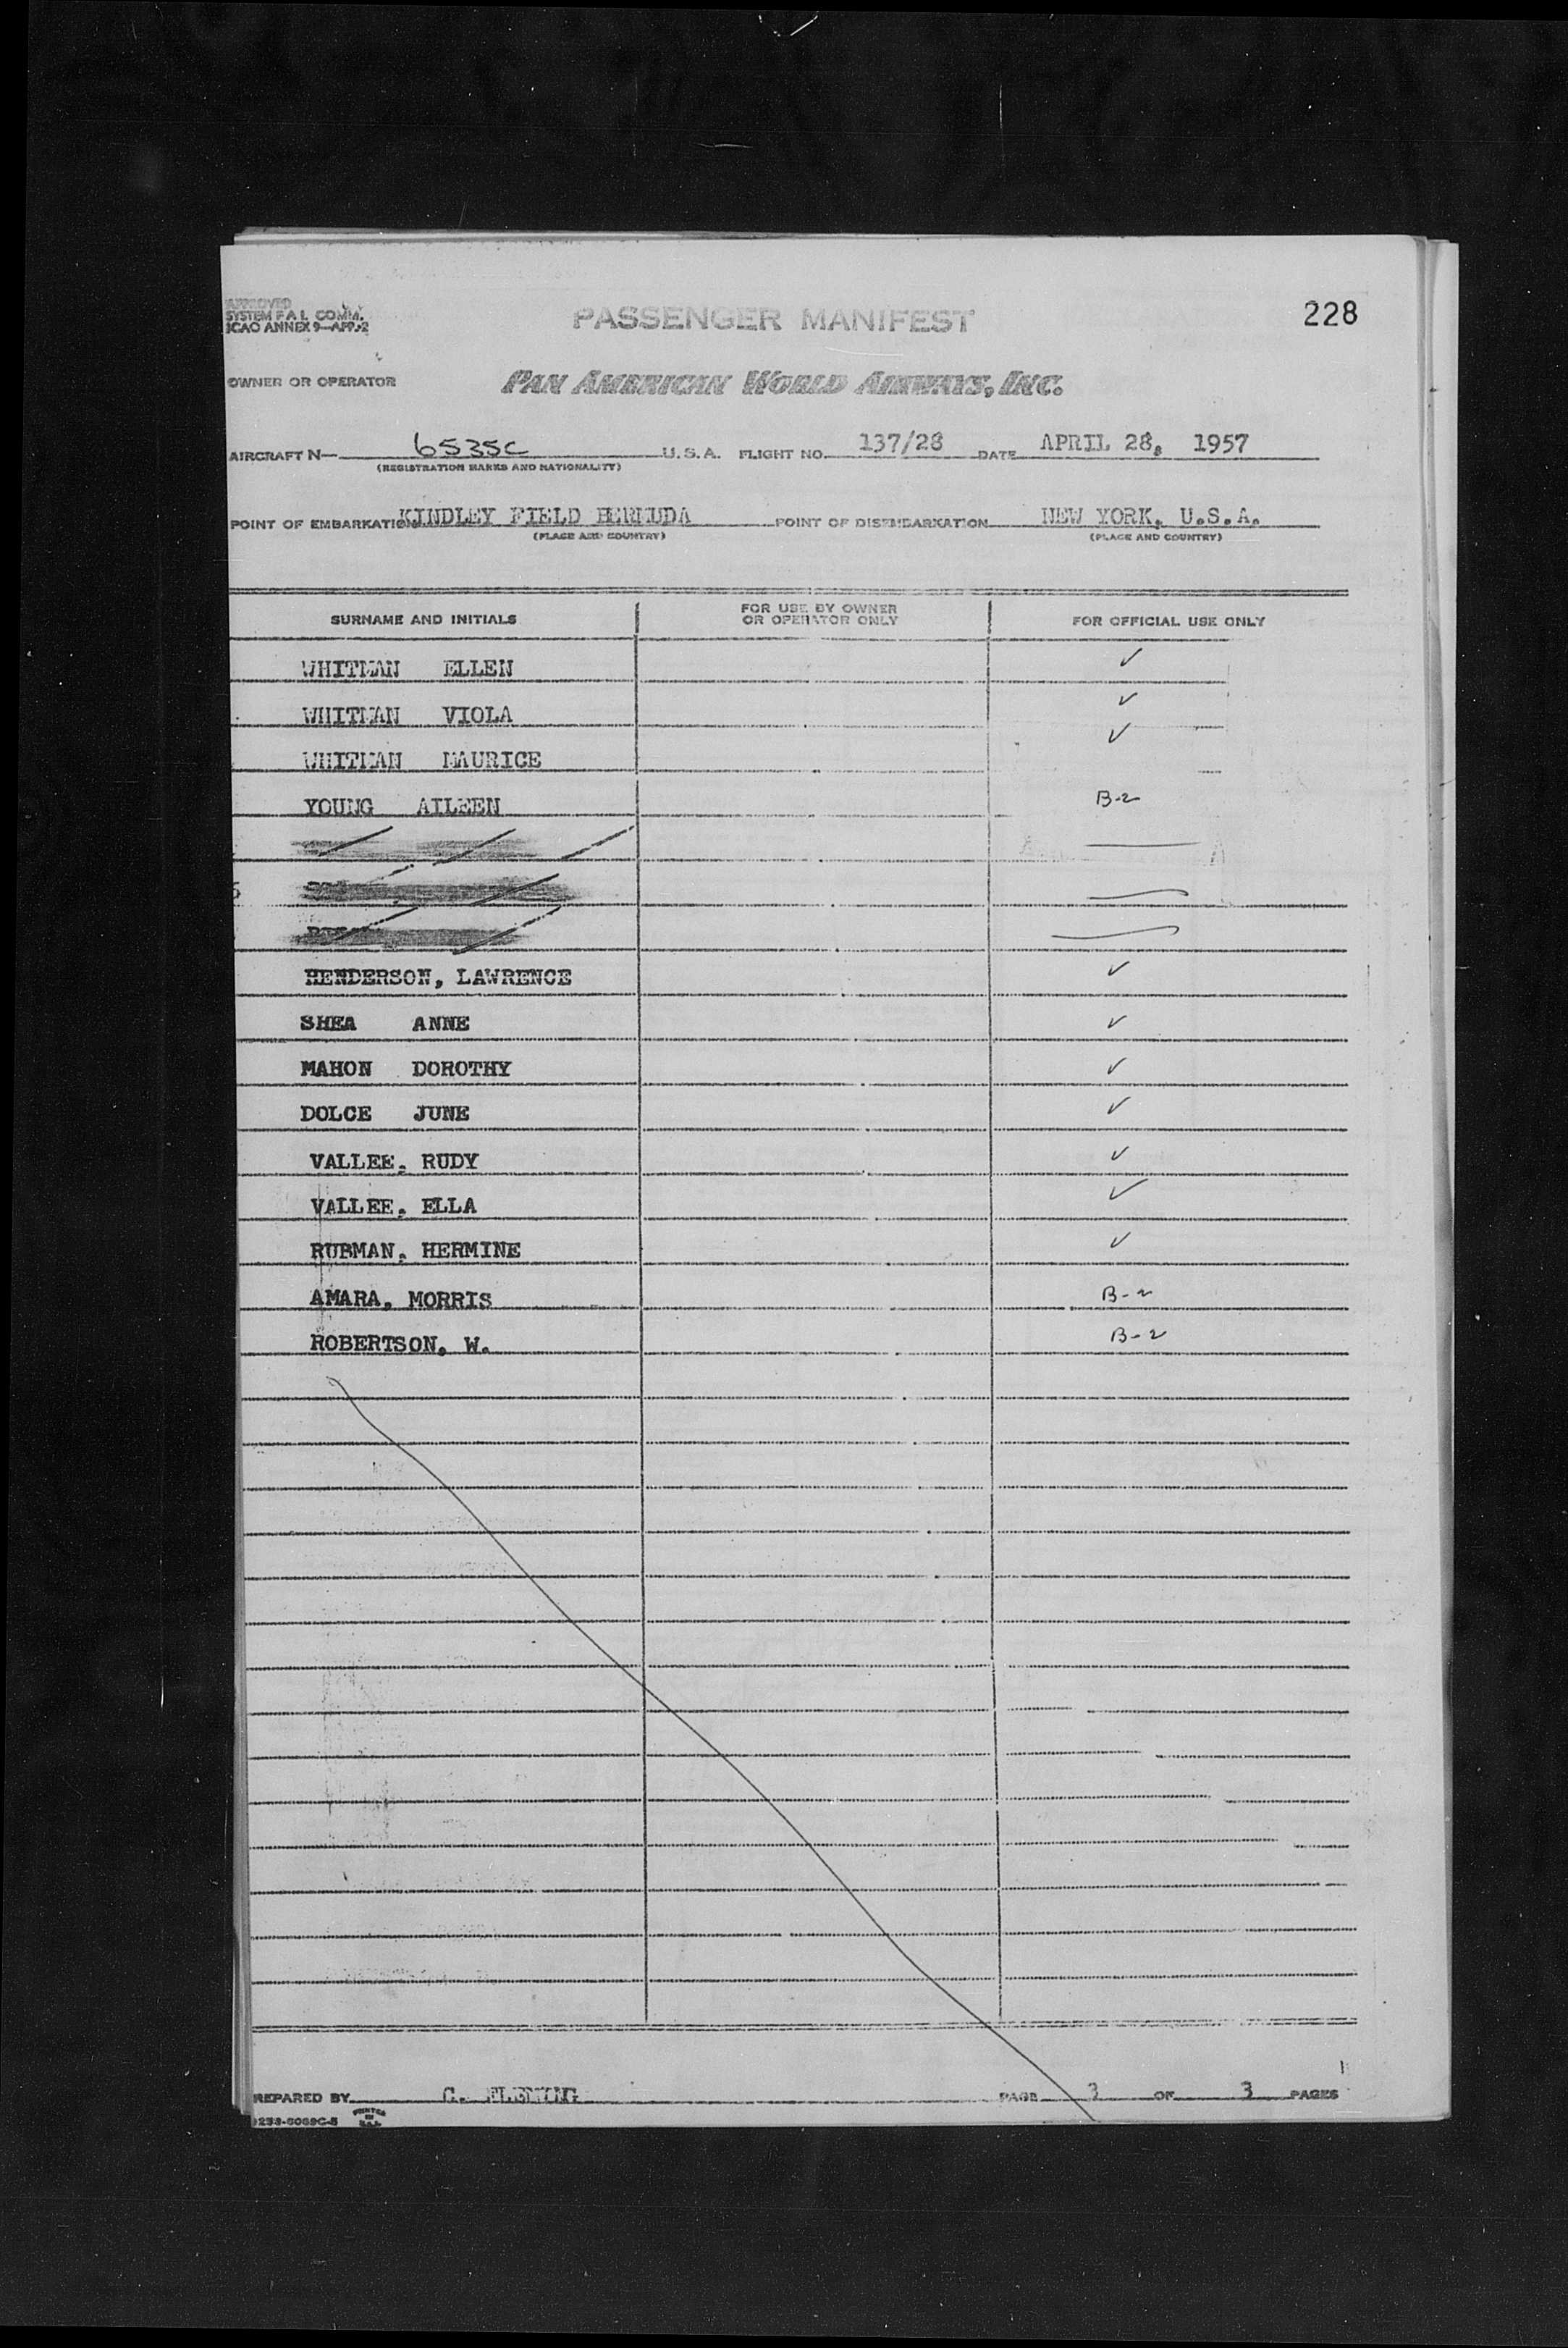 APPROVED
SYSTEM F A L COMM.
ICAO ANNEX 9—APP.2
PASSENGER MANIFEST
228
OWNER OR OPERATOR PAN AMERICAN WORLD AIRWAYS, INC.
AIRCRAFT N— 6535C U.S.A. FLIGHT NO. 137/28 DATE APRIL 28, 1957
(REGISTRATION MARKS AND NATIONALITY)
POINT OF EMBARKATION KINDLEY FIELD BERMUDA POINT OF DISEMBARKATION NEW YORK, U.S.A.
(PLACE AND COUNTRY) (PLACE AND COUNTRY)
SURNAME AND INITIALS FOR USE BY OWNER OR OPERATOR ONLY FOR OFFICIAL USE ONLY
WHITMAN ELLEN ✓
WHITMAN VIOLA ✓
WHITMAN MAURICE ✓
YOUNG AILEEN B-2
HENDERSON, LAWRENCE ✓
SHEA ANNE ✓
MAHON DOROTHY ✓
DOLCE JUNE ✓
VALLEE, RUDY ✓
VALLEE, ELLA ✓
RUBMAN, HERMINE ✓
AMARA, MORRIS B-2
ROBERTSON, W. B-2
PREPARED BY C. FLEMING PAGE 3 OF 3 PAGES